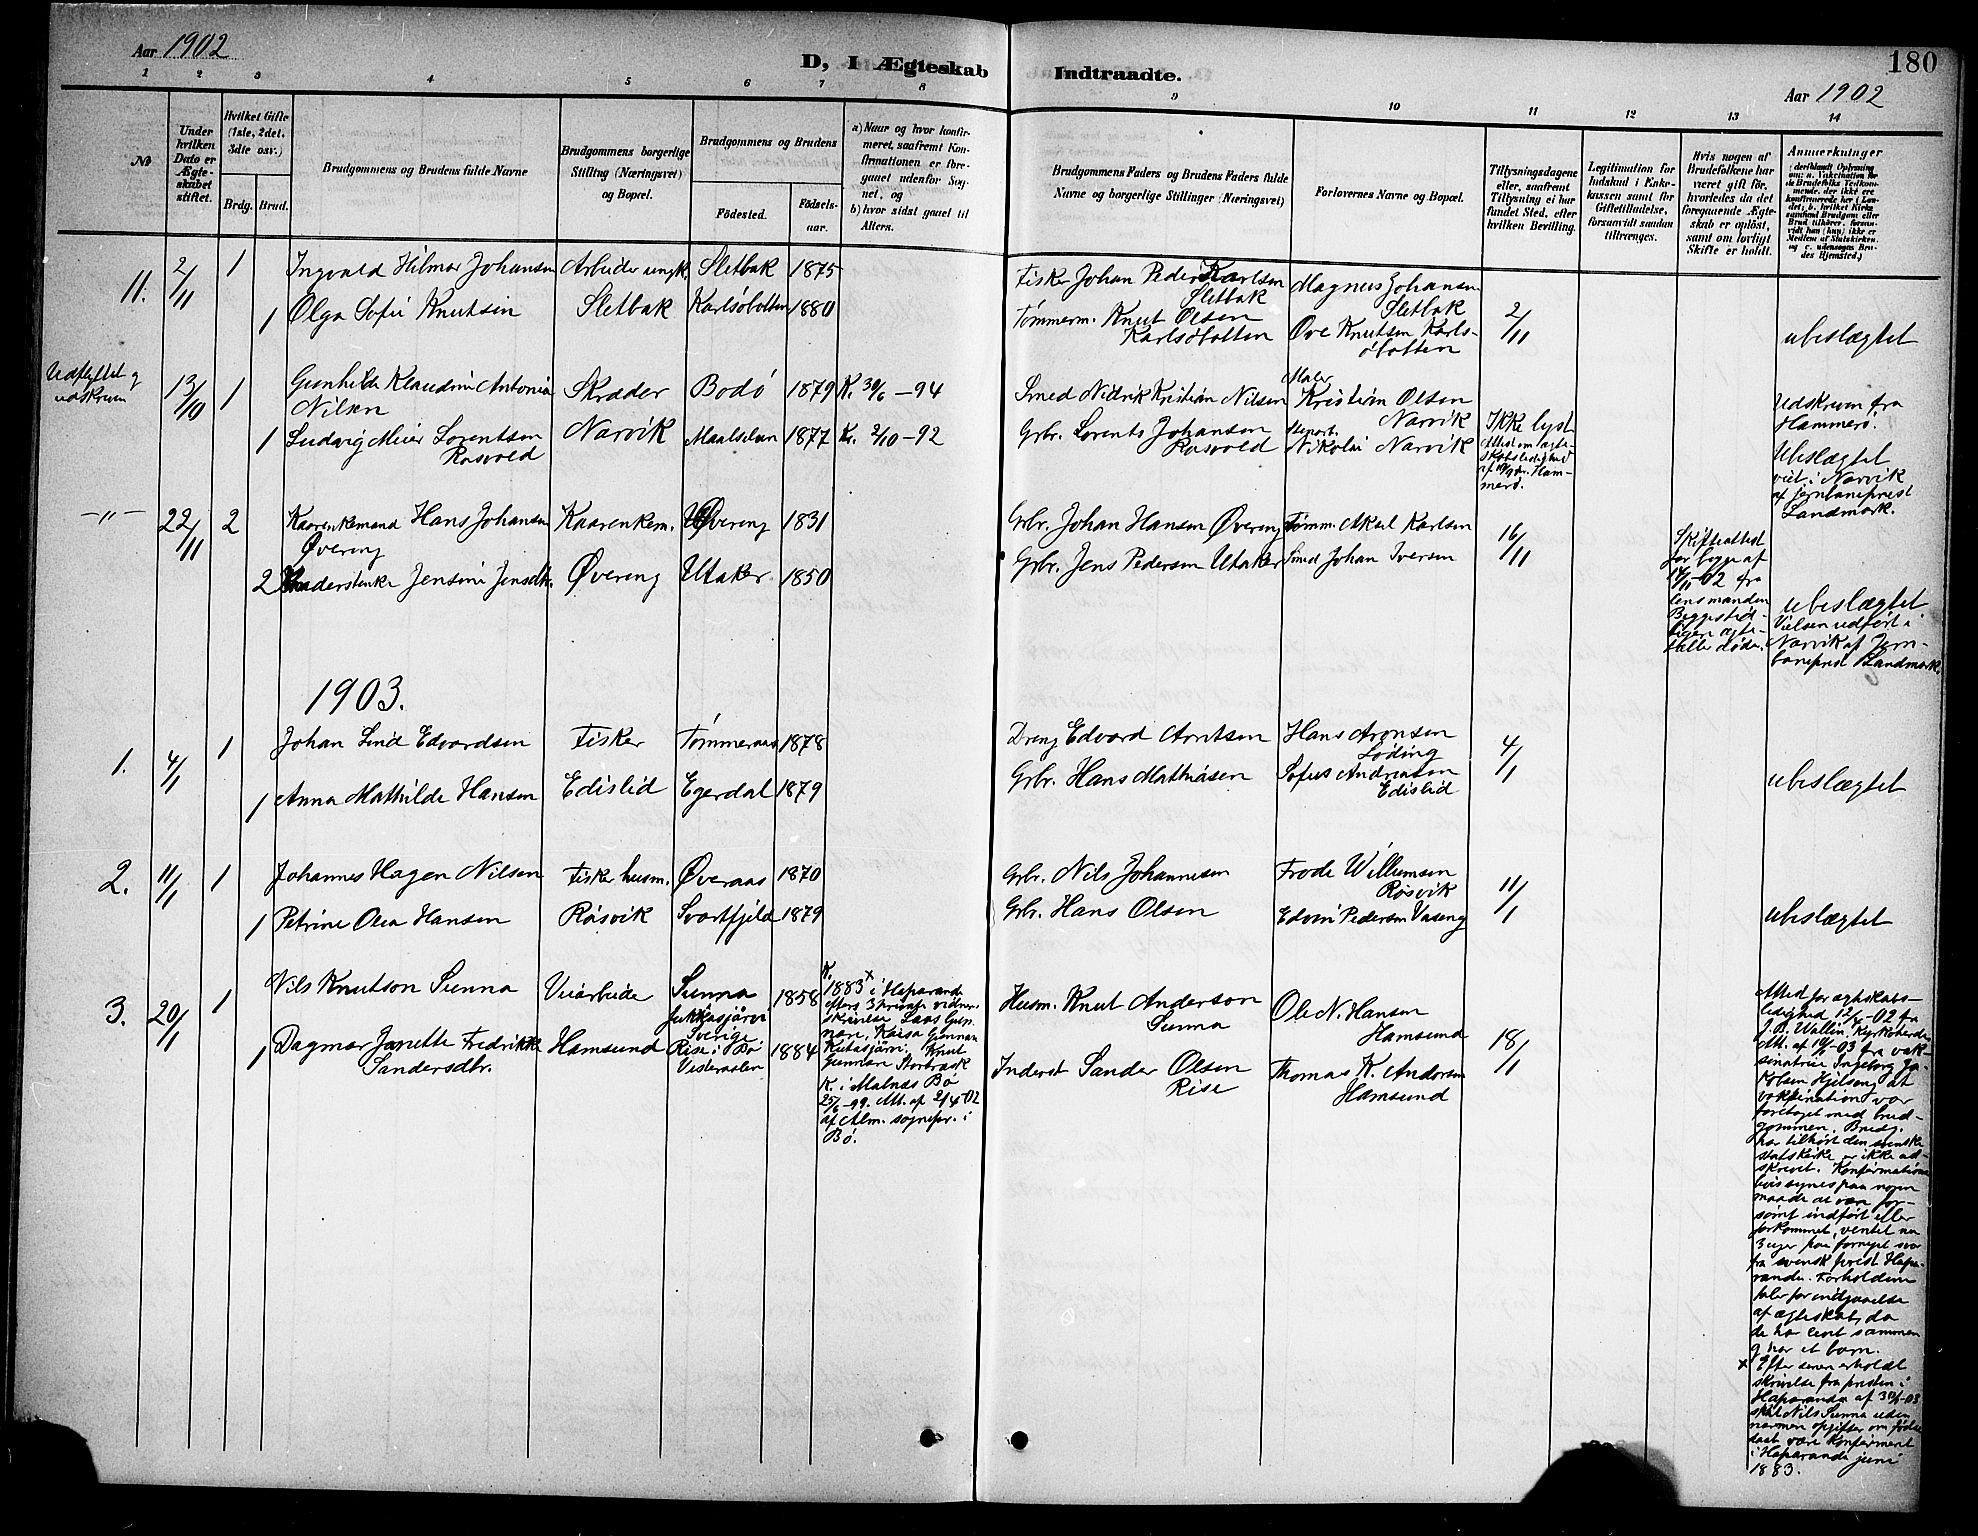 Aar 1902
D, I Ægteskab Indtraadte.
180
Aar 1902
1 2 3 4 5 6 7 8 9 10 11 12 13 14
No
Under hvilken Dato er Ægteskabet stiftet.
Hvilket Gifte (1ste, 2det, 3dte osv.)
Brdg. Brud.
Brudgommens og Brudens fulde Navne
Brudgommens borgerlige Stilling (Næringsvei) og Bopæl.
Brudgommens og Brudens
Fødested.
Fødselsaar.
a) Naar og hvor konfirmeret, saafremt Konfirmationen er foregaaet udenfor Sognet, og
b) hvor sidst gaaet til Alters.
Brudgommens Faders og Brudens Faders fulde Navne og borgerlige Stillinger (Næringsvei)
Forlovernes Navne og Bopæl.
Tillysningsdagene eller, saafremt Tillysning ei har fundet Sted, efter hvilken Bevilling.
Legitimation for Indskud i Enkekassen samt for Giftetilladelse, forsaavidt saadan tiltrænges.
Hvis nogen af Brudefolkene har været gift før, hvorledes da det foregaaende Ægteskab er opløst, samt om lovligt Skifte er holdt.
Anmerkninger
11. 2/11 1 Ingvald Hilmar Johansen Arbeider ungk. Sletbak 1875 Fisker Johan Peder Karlsen Sletbak Magnus Johansen Sletbak 2/11
1 Olga Sofie Knutsen Sletbak Karlsöbotten 1880 Tømmerm. Knut Olsen Karlsöbotten Ove Knutsen Karlsöbotten ubeslægtet
Udflyttet og udskreven 13/10 1 Gunhilda Klaudine Antonie Nilsen Skrædder Bodö 1879 K. 30/6 -94 Smed Nidrik Kristian Nilsen Maler Kristian Olsen Narvik Ikke lyst
1 Ludvig Meier Lorentsen Rosvold Narvik Maalselven 1877 K. 2/10 -92 Grbr. Lorents Johansen Rosvold Nikolai Narvik
Attest om ægteskabsledighed Hammerö.
Udskreven fra Hammerö.
Ubeslægtet
viet i Narvik
af jernbaneprest
Landmark.
-"- 22/11 2 Kaarenkemand Hans Johansen Øvereng Kaarenkem. Øvereng 1831 Grbr. Johan Hansen Øvereng Tømm. Aksel Karlsen 16/11
2 Jensine Jensdtr. Øvereng Utaker 1850 Grbr. Jens Pedersen Utaker Smed Johan Iversen
Skifteattest
for begge af
14/11-02 fra
lensmanden
Begges tidligere ægtefæller døde.
ubeslægtet
Vielsen udført i
Narvik af Jernbaneprest Landmark.
1903.
1. 4/1 1 Johan Lind Edvardsen Fisker Tømmeraas 1878 Dreng Edvard Arntsen Hans Aronsen Løding 4/1
1 Anna Mathilde Hansen Edislid Egerdal 1879 Grbr. Hans Mathiasen Sofus Andreasen Edislid ubeslægtet
2. 11/1 1 Johannes Hagen Nilsen Fisker husm. Øveraas 1870 Grbr. Nils Johannesen Frode Willumsen Røsvik 11/1
1 Petrine Olea Hansen Røsvik Svartfjeld 1879 Grbr. Hans Olsen Edvin Pedersen Vaseng ubeslægtet
3. 20/1 1 Nils Knutson Sunna Veiarbeider Sunna Jukkasjärvi Sverige 1858 Husm. Knut Anderson Sunna Ole N. Hansen Hamsund 18/1
1 Dagmar Janette Fredrikke Sandersdtr. Hamsund Rise i Bø Vesteraalen 1884 Inderst Sander Olsen Rise Thomas K. Andersen Hamsund
K.
1883 x i Haparanda
efters 3 private vidners
skrivelse
K. i Malnæs Bø
25/6-99. Att. af 2/4-02
af Alm. sognepr. i
Bø.
Attest for ægteskabsledighed 12/5-02 fra
J. A. Wallin, Kyrkoherde
Att. af 19/1-03 fra vaksinatrice Ingeborg Jakobsen Hjelseng at
vaksination var
foretaget med brudgommen. Brudg.
har tilhørt den svenske
statskirke er ikke udskrevet. Konfirmationsbevis synes paa nogen
maade at være forsømt indført eller
forkommet, ventet nu
3 uger paa fornyet svar
fra svensk prest Haparanda. Forholdene
taler for indgaaelse
af ægteskab, da
de har levet sammen
og har et barn.
x Efter senere erholdt
skrivelse fra presten i
Haparanda af 30/1-03
skal Nils Sunna uden
nærmere opgifter om fødsel
daab være konfirmert
i Haparanda juni
1883.